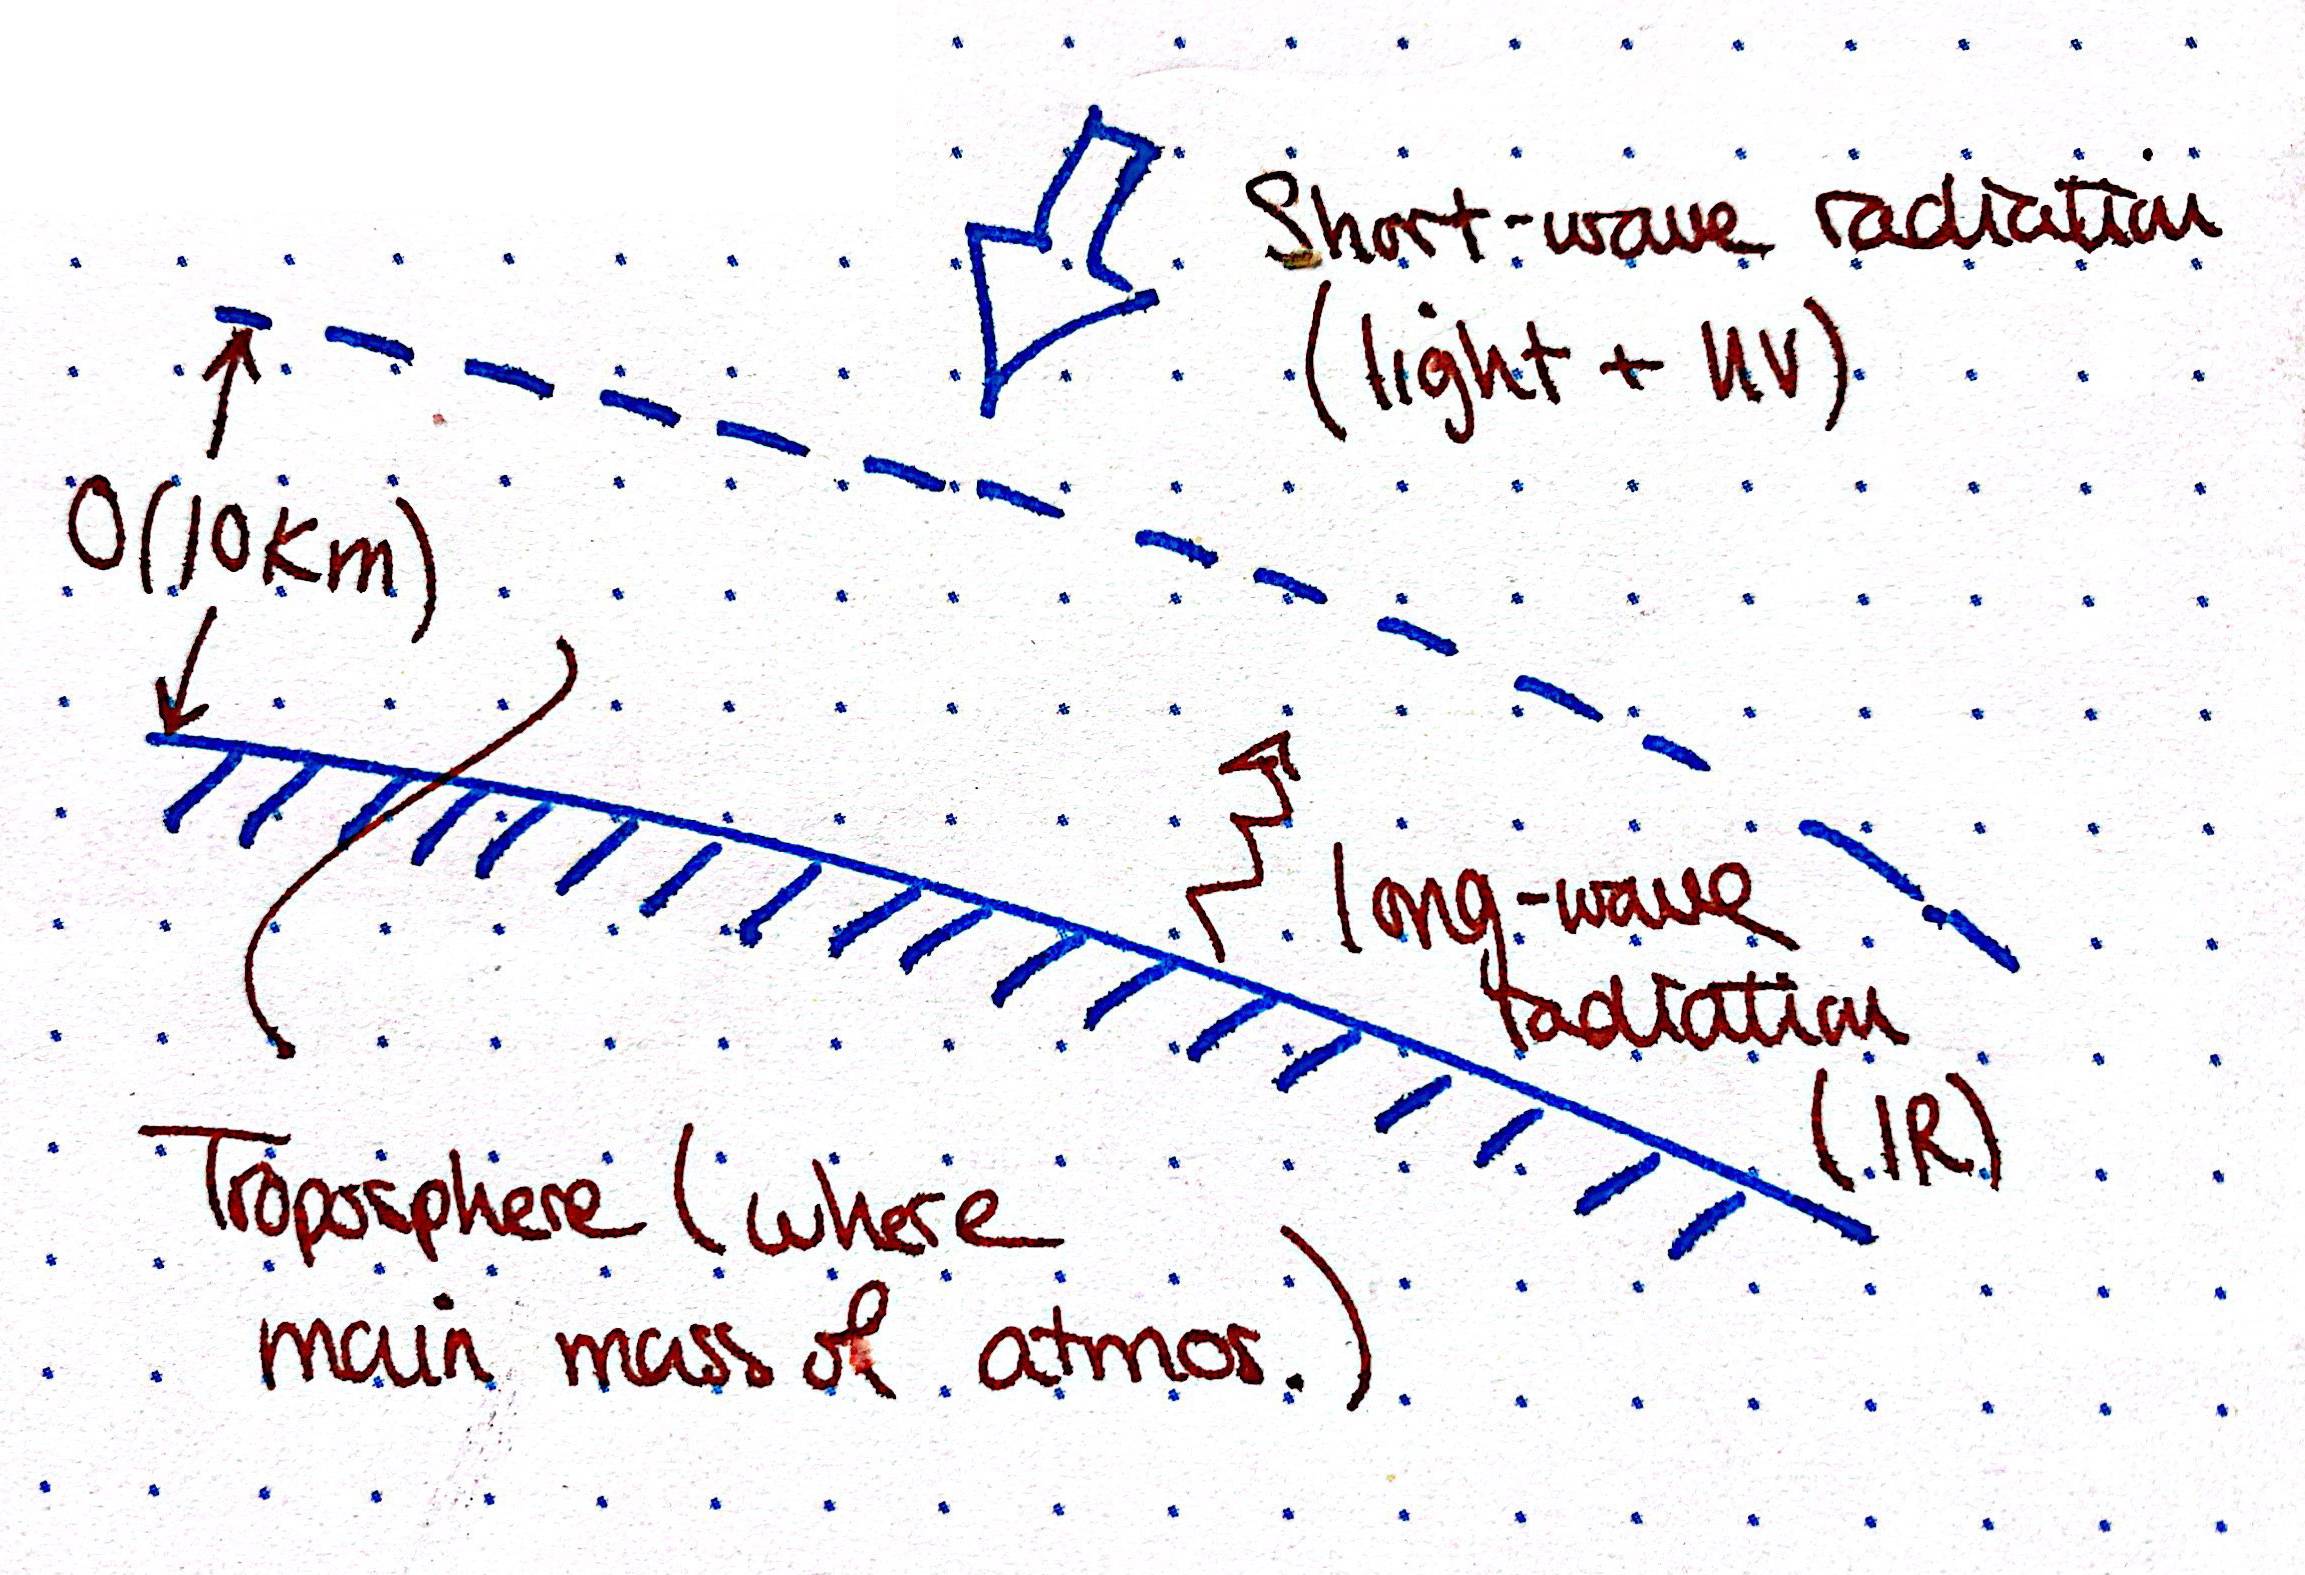 Short-wave radiation
(light + UV)
O(10km)
long-wave
radiation
(IR)
Troposphere (where
main mass of atmos.)